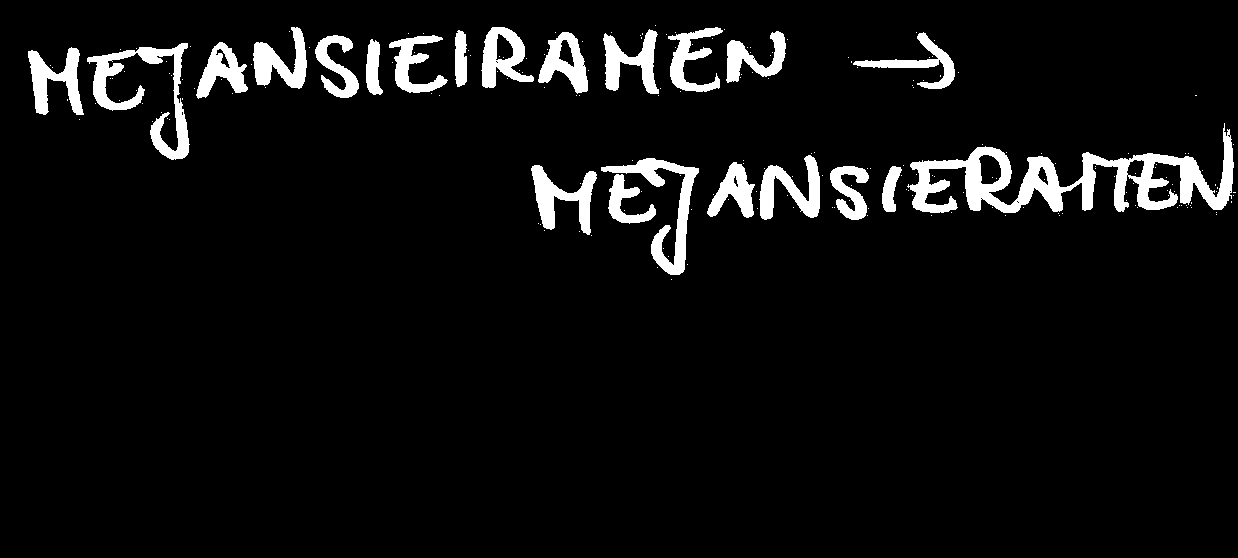 MEJANSIEIRAMEN →
MEJANSIERAMEN